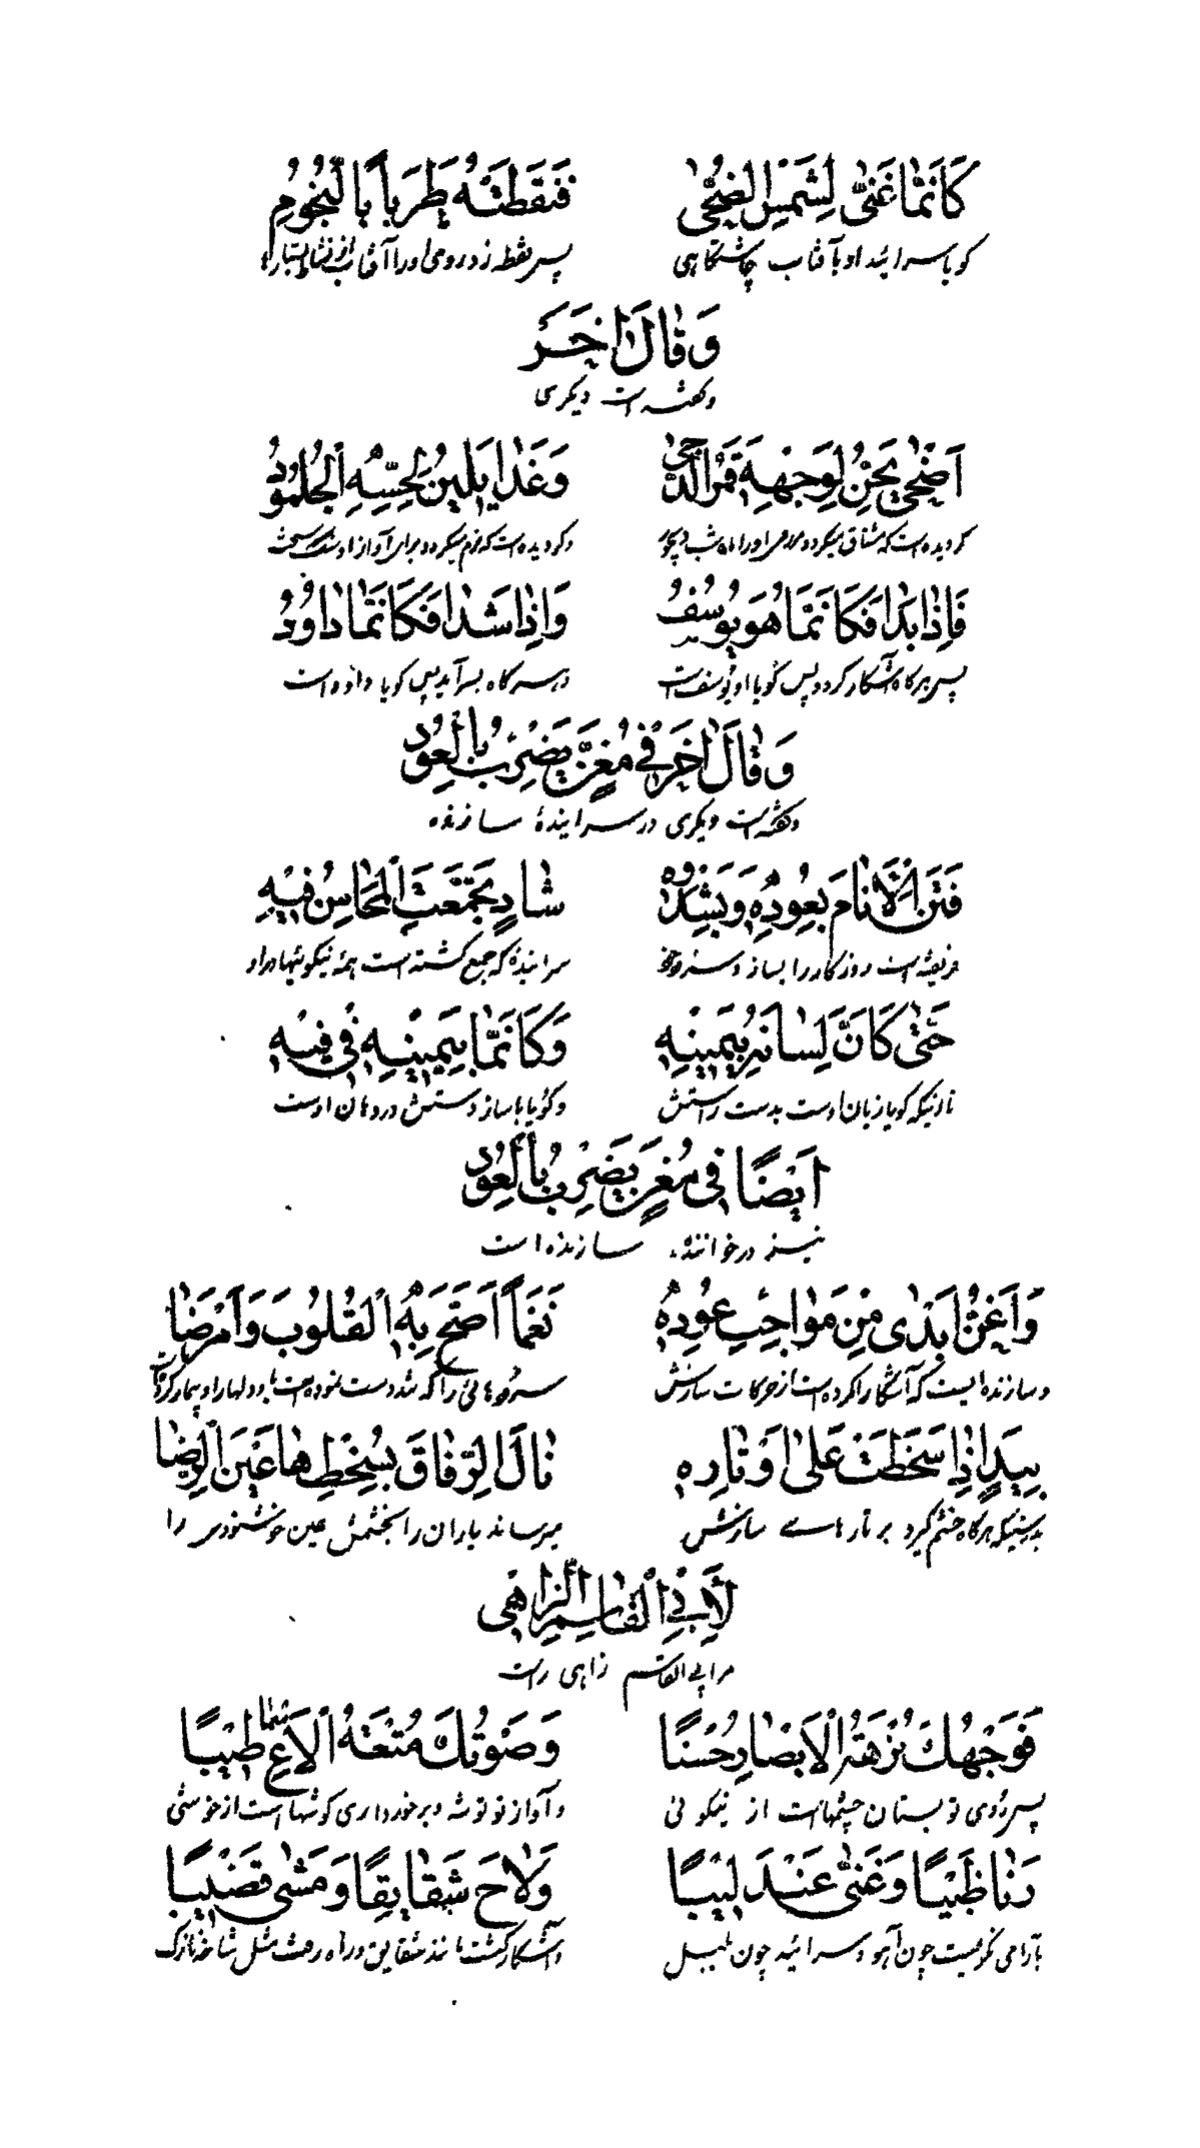 كَأَنَّمَا غَنّٰى لِشَمْسِ الضُّحٰى فَنَقَّطَتْهُ طَرَبًا بِالنُّجُومِ
گویا سرائید او بآفتاب چاشتگاهی پس نقطه زد روی اورا آفتاب از نشاط بستارها
وَقَالَ اٰخَرُ
وگفته است دیگری
اَضْحٰى يَحِنُّ لِوَجْهِهِ قَمَرُ الدُّجٰى وَغَدَا يَلِينُ لِحِسِّهِ الْجُلْمُودُ
گردیده است که مشتاق میگردد مر اورا ماه شب وگردیده است که نرم میگردد برای آواز او سنگ سخت
فَاِذَا بَدَا فَكَاَنَّمَا هُوَ يُوسُفُ وَاِذَا شَدَا فَكَاَنَّمَا دَاوُدُ
پس هرگاه آشکار گردد پس گویا او یوسف است و هرگاه بسرآید پس گویا داود است
وَقَالَ اٰخَرُ فِي مُغَنٍّ يَضْرِبُ بِالْعُودِ
وگفته است دیگری در سرایندهٔ سازنده
فَتَنَ الْاَنَامَ بِعُودِهِ وَبِشَدْوِهِ شَادٍ تَجَمَّعَتِ الْمَحَاسِنُ فِيهِ
فریفته است روزگار را بساز و سرود خود سراینده که جمع گشته است همه نیکوئیها در او
حَتّٰى كَاَنَّ لِسَانَهُ بِيَمِينِهِ وَكَاَنَّمَا بِيَمِينِهِ فِي فِيهِ
تا اینکه گویا زبان اوست بدست راستش وگویا با ساز دستش در دهان اوست
اَيْضًا فِي مُغَنٍّ يَضْرِبُ بِالْعُودِ
نیز در خواننده سازنده است
وَاَغَنَّ اَبْدٰى مِنْ مَوَاجِبِ عُودِهِ نَغَمًا اَصَحَّ بِهِ الْقُلُوبَ وَاَمْرَضَا
وسازنده ایست که آشکارا کرده است از حرکات سازش سرودهائی را که تندرست نموده است با و دلها را و بیمار کرده است
بِيَدٍ اِذَا سَخَطَتْ عَلٰى اَوْتَارِهِ نَالَ الرِّفَاقَ بِسُخْطِهَا عَيْنَ الرِّضَا
بدستیکه هرگاه خشم گیرد بر تارهاے سازش میرساند یاران را بخشمش عین خوشنودی را
لِاَبِي الْقَاسِمِ الزَّاهِي
مر ابی القاسم زاهی راست
فَوَجْهُكَ نُزْهَةُ الْاَبْصَارِ حُسْنًا وَصَوْتُكَ مُتْعَةُ الْاَسْمَاعِ طِيبًا
پس روی تو بستان چشمهاست از نیکوئی وآواز تو توشه وبرخورداری گوشها است از خوشی
رَنَا ظَبْيًا وَغَنّٰى عَنْدَلِيبًا وَلَاحَ شَقَايِقًا وَمَشٰى قَضِيبًا
بآرامی نگریست چون آهو وسرائید چون بلبل وآشکار گشت مانند شقایق وراه رفت مثل شاخ نازک